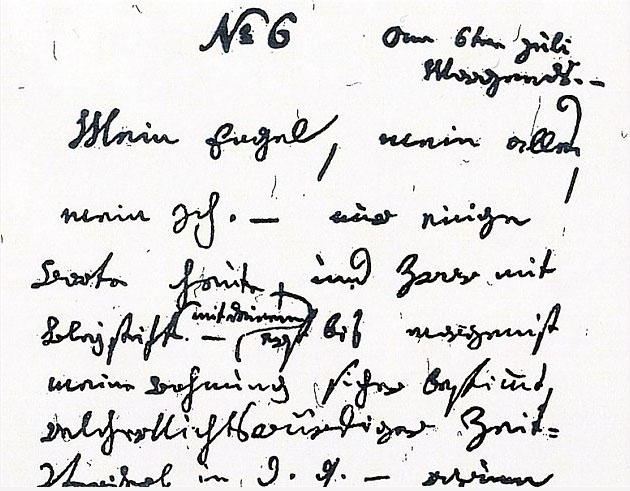 № 6 am 6ten Juli
Morgends. –
Mein Engel, mein alles,
mein Ich. – nur einige
Worte heute, und zwar mit
Bleystift. – (mit deinem) erst bis morgen ist
meine Wohnung sicher bestimt,
welcher Nichtswürdiger Zeit-
in d. g. –